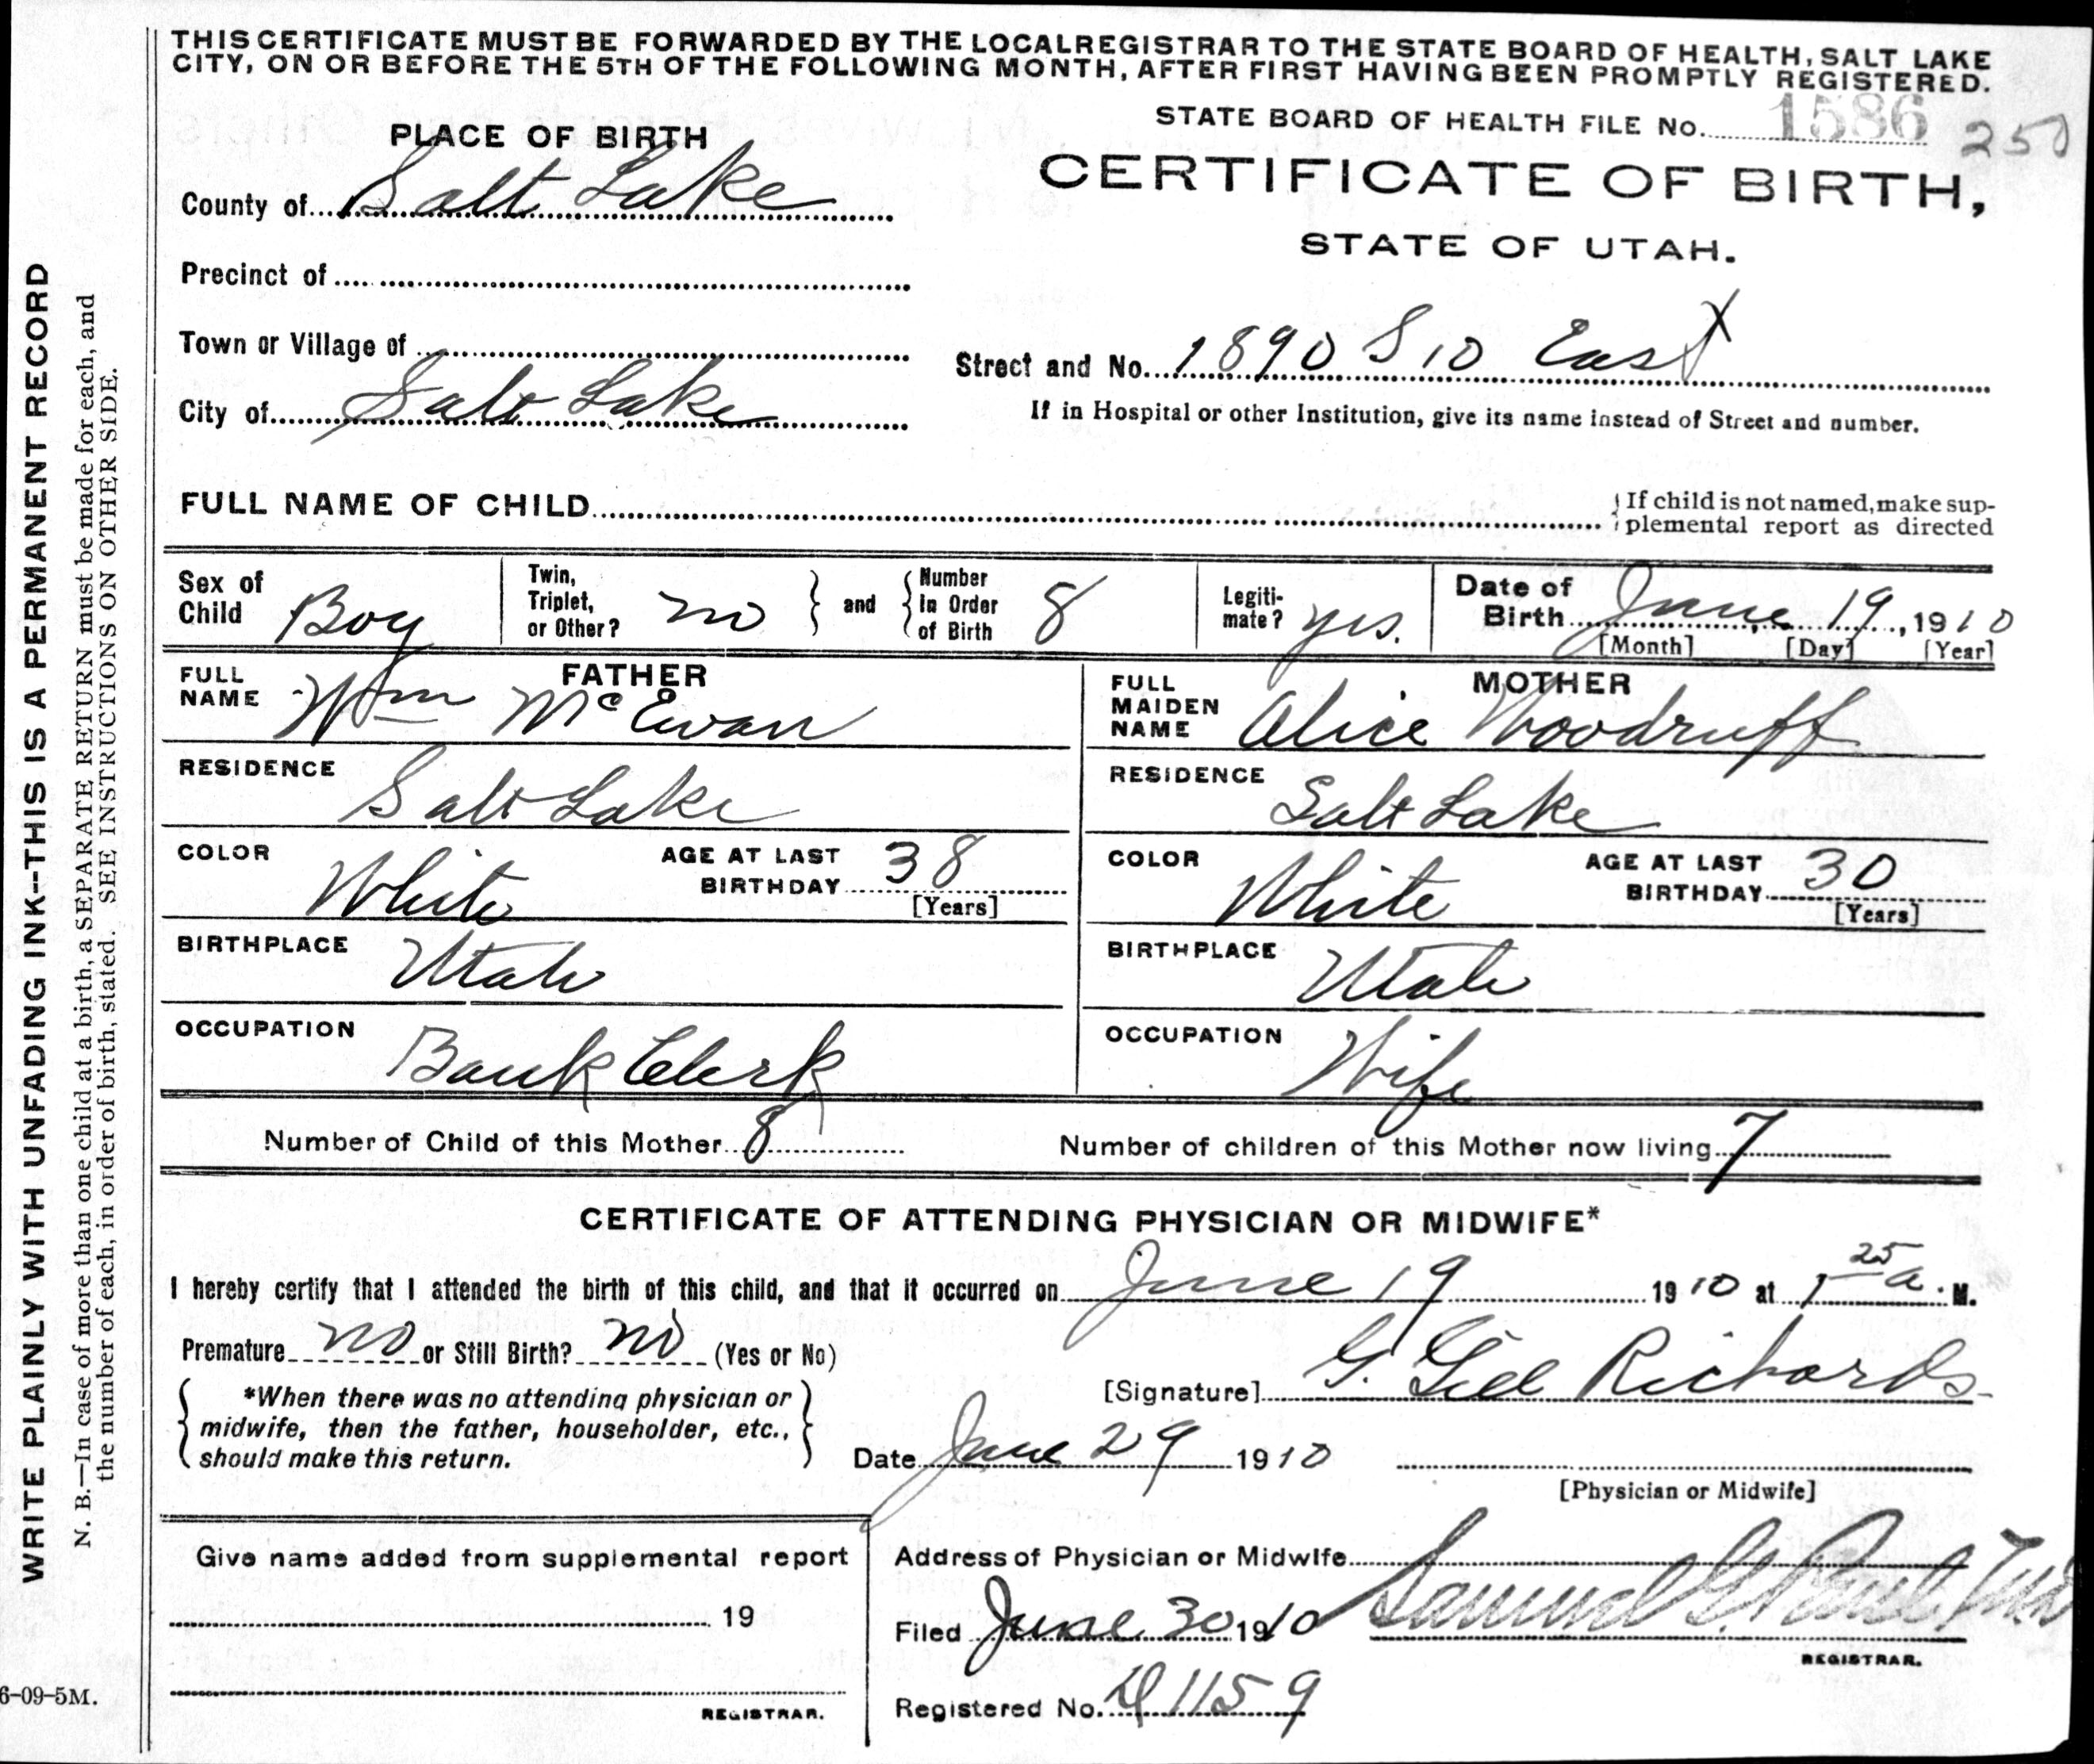 THIS CERTIFICATE MUST BE FORWARDED BY THE LOCAL REGISTRAR TO THE STATE BOARD OF HEALTH, SALT LAKE
CITY, ON OR BEFORE THE 5TH OF THE FOLLOWING MONTH, AFTER FIRST HAVING BEEN PROMPTLY REGISTERED.
STATE BOARD OF HEALTH FILE No. 1586 250
PLACE OF BIRTH
CERTIFICATE OF BIRTH,
STATE OF UTAH.
County of Salt Lake
Precinct of
Town or Village of
Street and No. 1890 S 10 East X
City of Salt Lake
If in Hospital or other Institution, give its name instead of Street and number.
FULL NAME OF CHILD
If child is not named, make sup-
plemental report as directed
Sex of Child Boy
Twin, Triplet, or Other? no and Number in Order of Birth 8
Legiti-
mate? yes.
Date of Birth June 19, 1910
[Month] [Day] [Year]
FATHER
FULL NAME Wm McEwan
MOTHER
FULL MAIDEN NAME Alice Woodruff
RESIDENCE Salt Lake
RESIDENCE Salt Lake
COLOR White AGE AT LAST BIRTHDAY 38 [Years]
COLOR White AGE AT LAST BIRTHDAY 30 [Years]
BIRTHPLACE Utah
BIRTHPLACE Utah
OCCUPATION Bank Clerk
OCCUPATION Wife
Number of Child of this Mother 8
Number of children of this Mother now living 7
CERTIFICATE OF ATTENDING PHYSICIAN OR MIDWIFE*
I hereby certify that I attended the birth of this child, and that it occurred on June 19 1910 at 1 25 a. M.
Premature no or Still Birth? no (Yes or No)
[Signature] G. Gill Richards
*When there was no attending physician or
midwife, then the father, householder, etc.,
should make this return.
Date June 29 1910
[Physician or Midwife]
Give name added from supplemental report
19
REGISTRAR.
Address of Physician or Midwife
Filed June 30 1910 Samuel G. Paul
REGISTRAR.
Registered No. 1159
6-09-5M.
WRITE PLAINLY WITH UNFADING INK--THIS IS A PERMANENT RECORD
N. B.—In case of more than one child at a birth, a SEPARATE RETURN must be made for each, and
the number of each, in order of birth, stated. SEE INSTRUCTIONS ON OTHER SIDE.